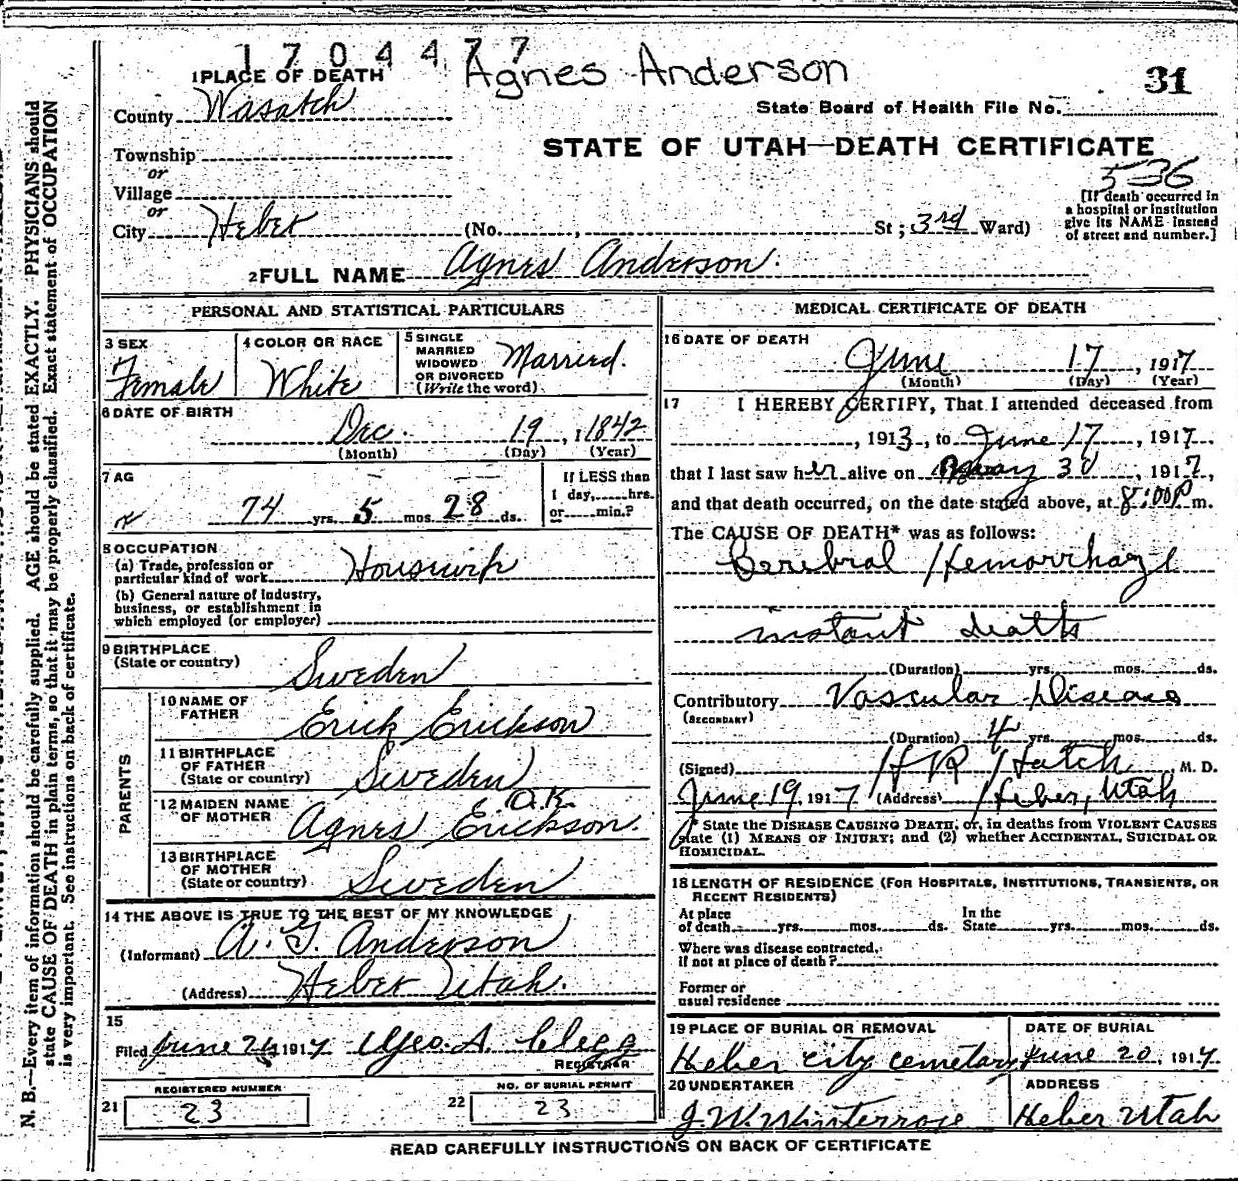 1704477
Agnes Anderson
31
1 PLACE OF DEATH
County Wasatch
State Board of Health File No.
Township
or
STATE OF UTAH—DEATH CERTIFICATE
536
Village
or
City Heber (No. , St; 3rd Ward)
[If death occurred in
a hospital or institution
give its NAME instead
of street and number.]
2 FULL NAME Agnes Anderson.
PERSONAL AND STATISTICAL PARTICULARS
3 SEX
Female
4 COLOR OR RACE
White
5 SINGLE
MARRIED
WIDOWED
OR DIVORCED
(Write the word)
Married.
6 DATE OF BIRTH
Dec. 19, 1842
(Month) (Day) (Year)
7 AG
74 yrs. 5 mos. 28 ds.
If LESS than
1 day, hrs.
or min.?
8 OCCUPATION
(a) Trade, profession or
particular kind of work Housewife
(b) General nature of industry,
business, or establishment in
which employed (or employer)
9 BIRTHPLACE
(State or country) Sweden
PARENTS
10 NAME OF
FATHER Erick Erickson
11 BIRTHPLACE
OF FATHER
(State or country) Sweden
12 MAIDEN NAME O.K.
OF MOTHER Agnes Erickson.
13 BIRTHPLACE
OF MOTHER
(State or country) Sweden
14 THE ABOVE IS TRUE TO THE BEST OF MY KNOWLEDGE
(Informant) A. G. Anderson
(Address) Heber Utah.
15
Filed June 1917 Geo. A. Clegg
REGISTRAR
REGISTERED NUMBER
21 23
NO. OF BURIAL PERMIT
22 23
MEDICAL CERTIFICATE OF DEATH
16 DATE OF DEATH
June 17, 1917
(Month) (Day) (Year)
17 I HEREBY CERTIFY, That I attended deceased from
, 1913, to June 17, 1917.
that I last saw her alive on May 30, 1917,
and that death occurred, on the date stated above, at 8:00 P m.
The CAUSE OF DEATH* was as follows:
Cerebral Hemorrhage
instant death
(Duration) yrs. mos. ds.
Contributory Vascular Disease
(SECONDARY)
(Duration) 4 yrs. mos. ds.
(Signed) H R Hatch M. D.
June 19, 1917 (Address) Heber, Utah
* State the DISEASE CAUSING DEATH, or, in deaths from VIOLENT CAUSES
state (1) MEANS OF INJURY; and (2) whether ACCIDENTAL, SUICIDAL OR
HOMICIDAL.
18 LENGTH OF RESIDENCE (FOR HOSPITALS, INSTITUTIONS, TRANSIENTS, OR
RECENT RESIDENTS)
At place
of death yrs. mos. ds.
In the
State yrs. mos. ds.
Where was disease contracted,
if not at place of death?
Former or
usual residence
19 PLACE OF BURIAL OR REMOVAL
Heber city cemetary
DATE OF BURIAL
June 20, 1917
20 UNDERTAKER
J. W. Winterrose
ADDRESS
Heber Utah
READ CAREFULLY INSTRUCTIONS ON BACK OF CERTIFICATE
N. B.—Every item of information should be carefully supplied. AGE should be stated EXACTLY. PHYSICIANS should
state CAUSE OF DEATH in plain terms, so that it may be properly classified. Exact statement of OCCUPATION
is very important. See instructions on back of certificate.